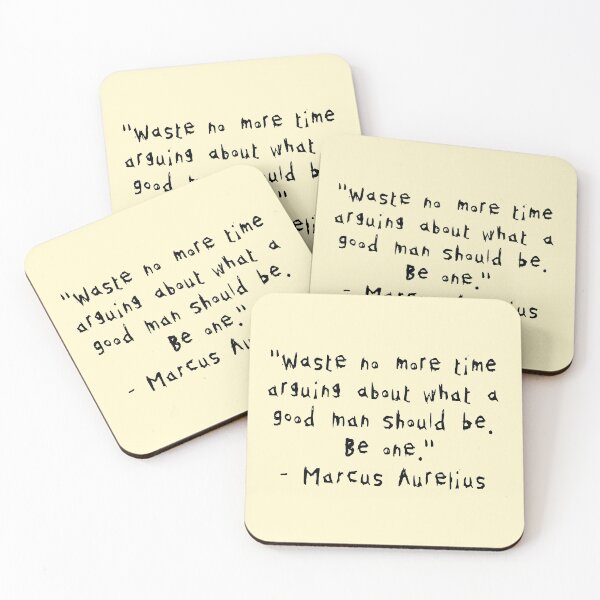 "Waste no more time
arguing about what
good
"Waste no more time
arguing about what a
good man should be.
Be one."
- Marcus Aurelius
"Waste no more time
arguing about what a
good man should be.
Be one."
- Marcus
"Waste no more time
arguing about what a
good man should be.
Be one."
- Marcus Aurelius